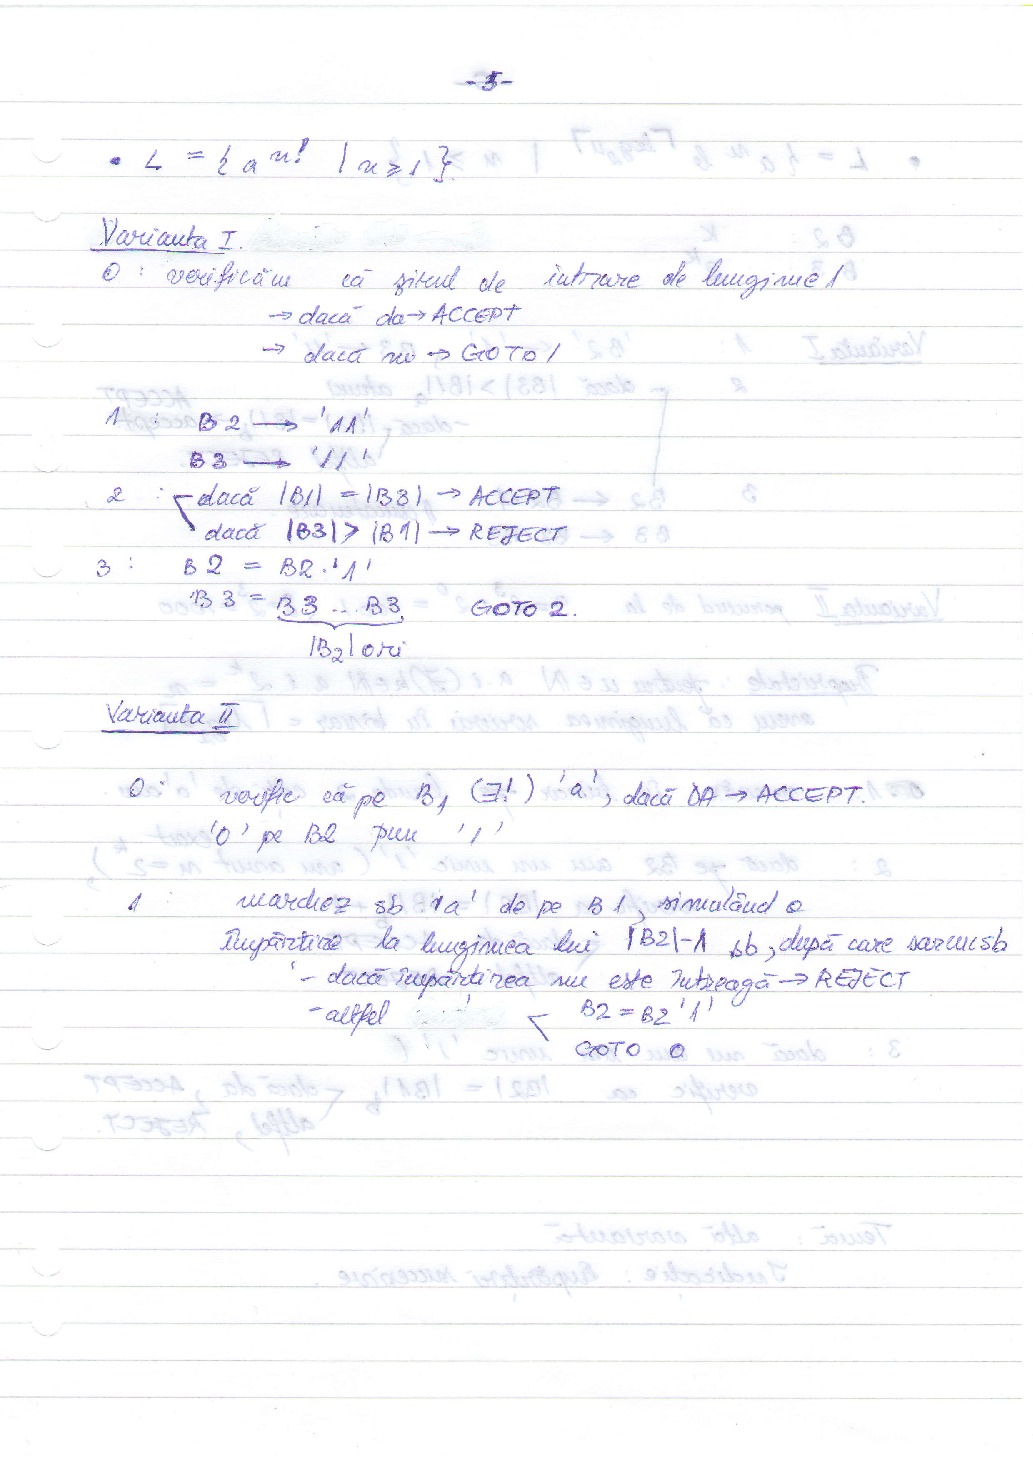 -5-
• L = { a^n! | n ≥ 1 }
Varianta I.
0 : verificăm că șirul de intrare de lungime 1
→ dacă da → ACCEPT
→ dacă nu → GOTO 1
1 : B2 → '11'
B3 → '11'
2 : dacă |B1| = |B3| → ACCEPT
dacă |B3| > |B1| → REJECT
3 : B2 = B2.'1'
B3 = B3 ... B3 GOTO 2.
|B2| ori
Varianta II
0 : verific că pe B1 (∃!) 'a', dacă DA → ACCEPT.
'0' pe B2 pun '1'
1 : marchez sb 'a' de pe B1, simulând o
împărțire la lungimea lui |B2|-1 sb, după care sb
- dacă împărțirea nu este întreagă → REJECT
- altfel B2 = B2 '1'
GOTO 0